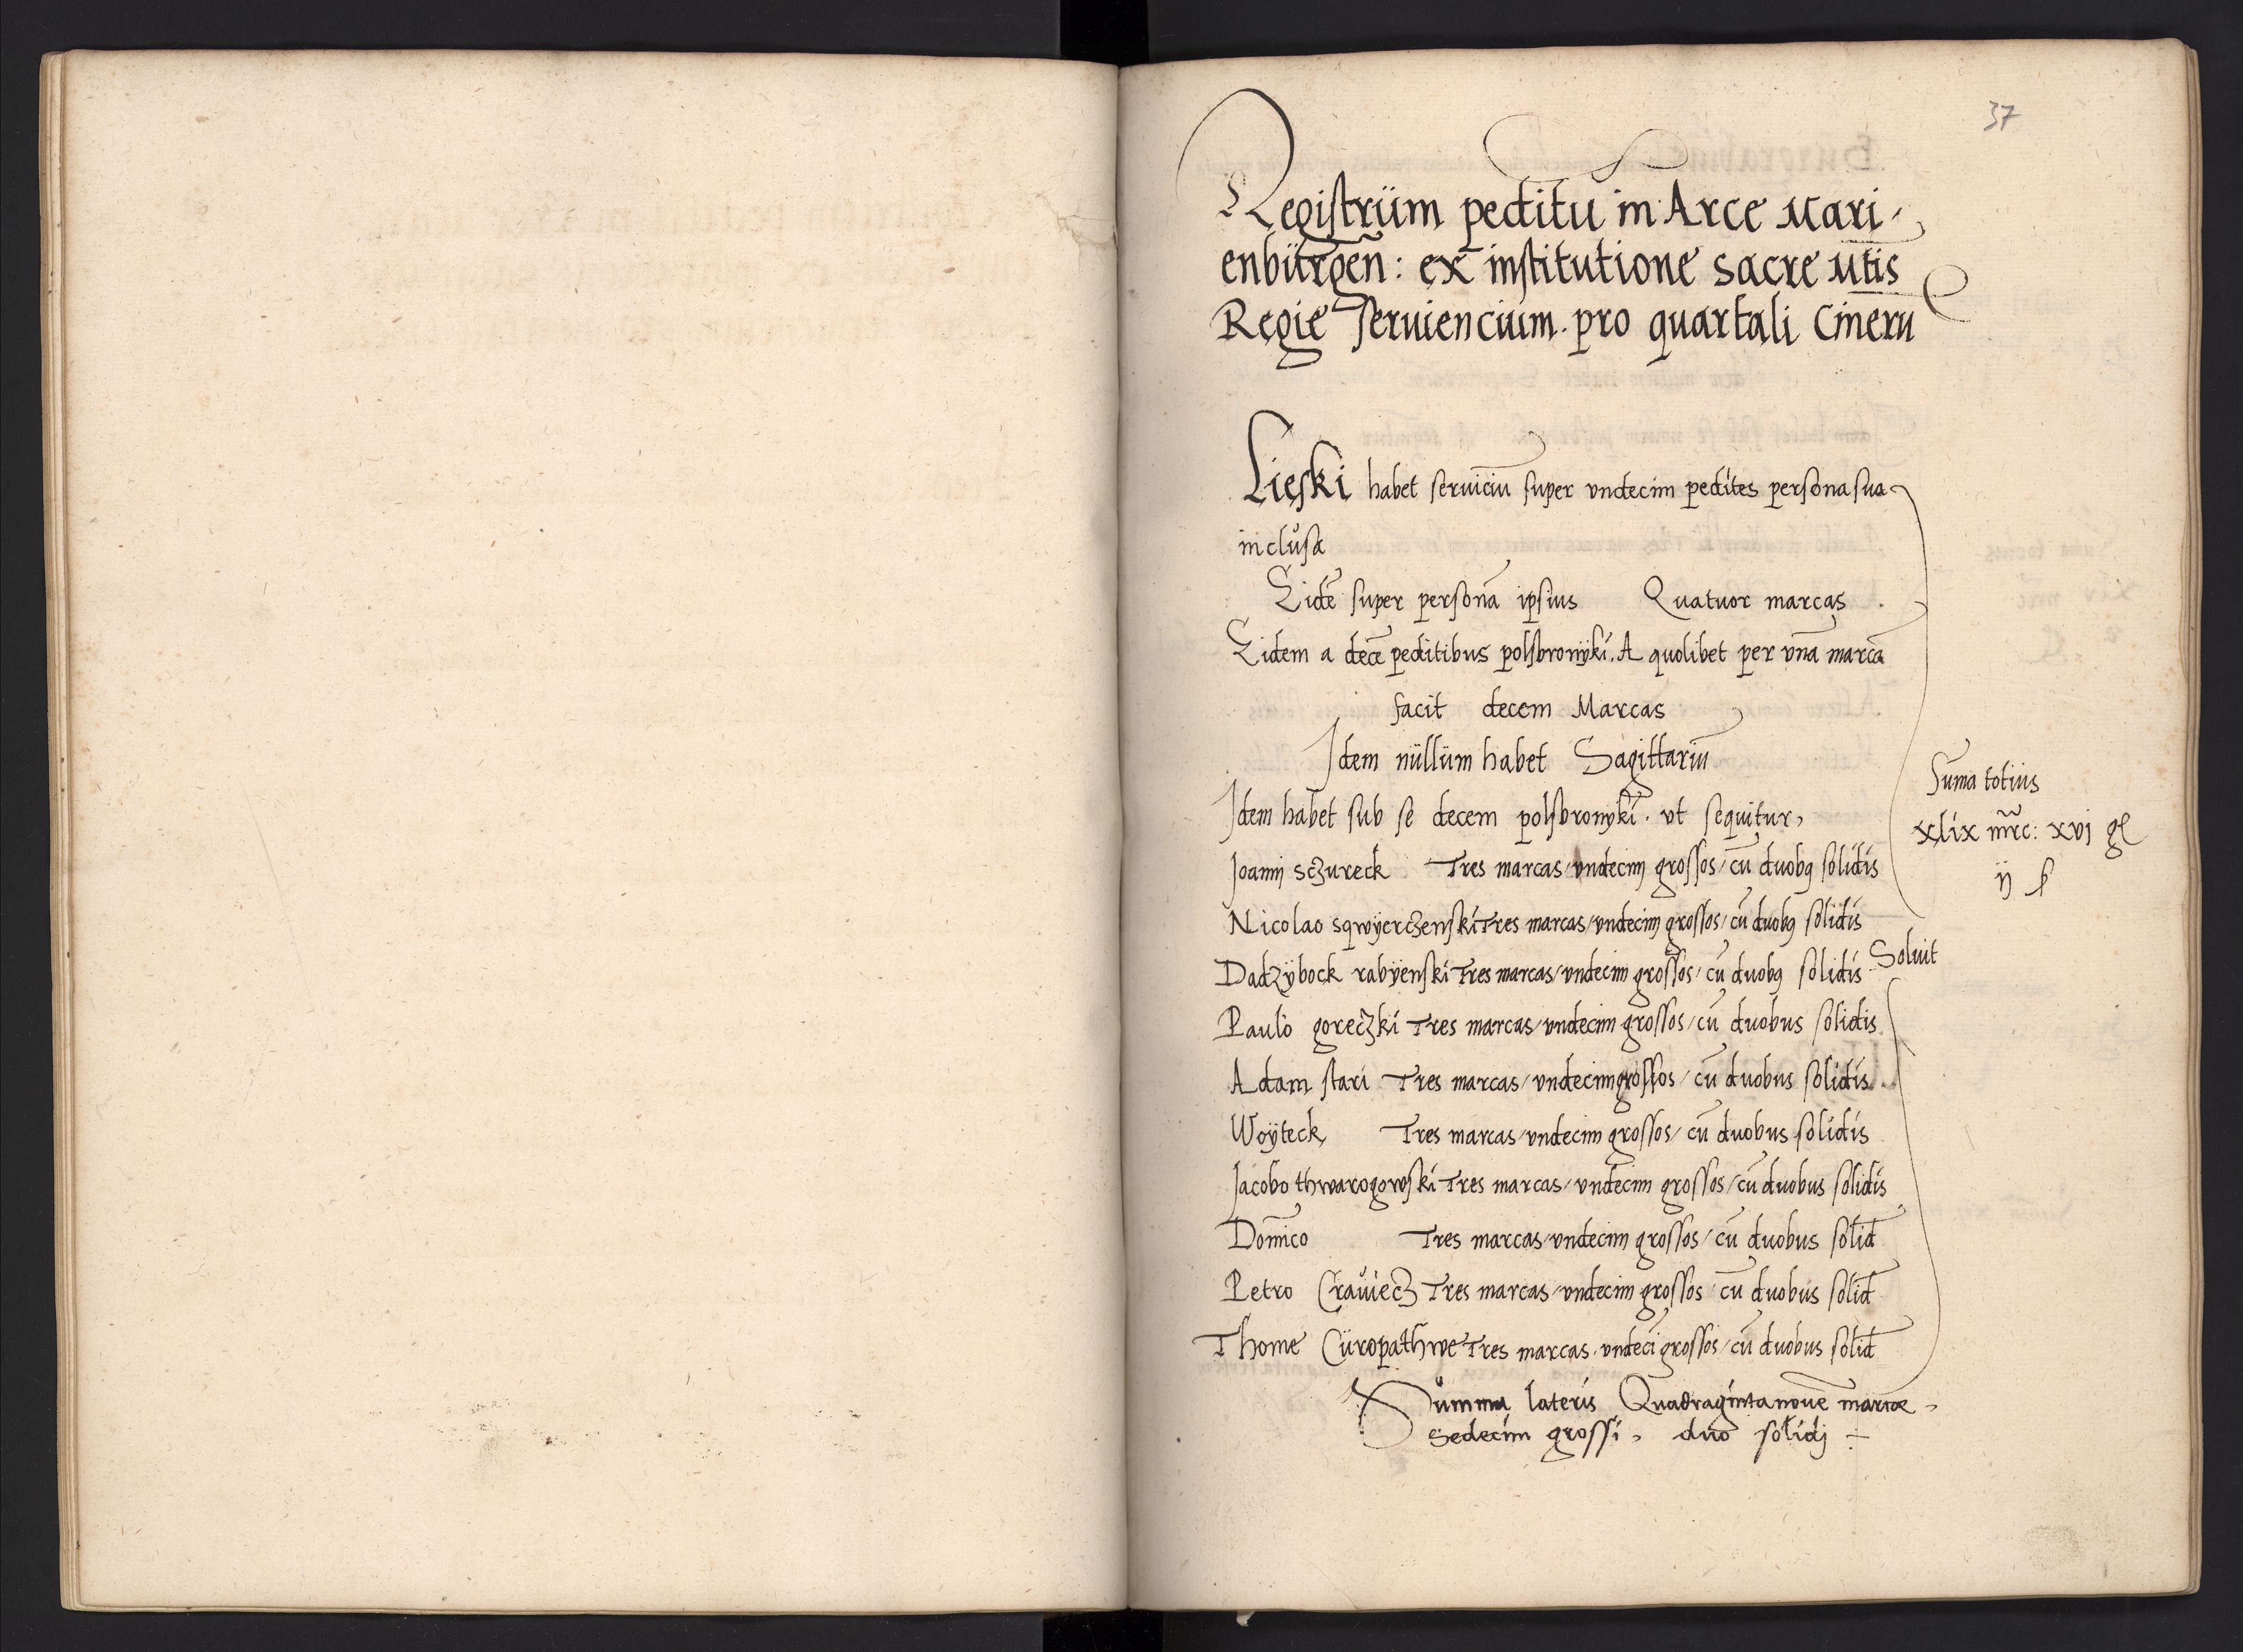 37
Registrüm peditū in Arce Mari,
enbürgeñ: ex institutione sacre Mtis
Regie seruienciüm. pro quartali Cinerū
Lieski habet seruiciū super vndecim pedites persona sua
inclusa
Eidē super personā ipsius Quatuor marcas .
Eidem a decē peditibus polsbronÿki. A quolibet per vnā marcā
facit decem Marcas
Idem nüllüm habet Sagittariū
Idem habet sub se decem polsbronÿki. vt sequitur,
Joanni sczureck Tres marcas/vndecim grossos/cū duobꝰ solidis
Nicolao sqwÿerczenski Tres marcas/vndecim grossos/cū duobꝰ solidis
Dadzÿbock rabÿenski Tres marcas/vndecim grossos/cū duobꝰ solidis
Paulo goreczki Tres marcas/vndecim grossos/cū duobus solidis
Adam stari Tres marcas/vndecim grossos/cū duobus solidis
Woÿteck Tres marcas/vndecim grossos/cū duobus solidis
Jacobo thwarogowski Tres marcas/vndecim grossos/cū duobus solidis
Dom̄ico Tres marcas/vndecim grossos/cū duobus solid
Petro Crawiecz Tres marcas/vndecim grossos/cū duobus solid
Thome Cüropathwe Tres marcas/vndecī grossos/cū duobus solid
Summa lateris Quadraginta nouē marcæ,
Sedecim grossi, duo solidj
Suma totius
xlix mrc: xvj gl
ij ſ
Soluit